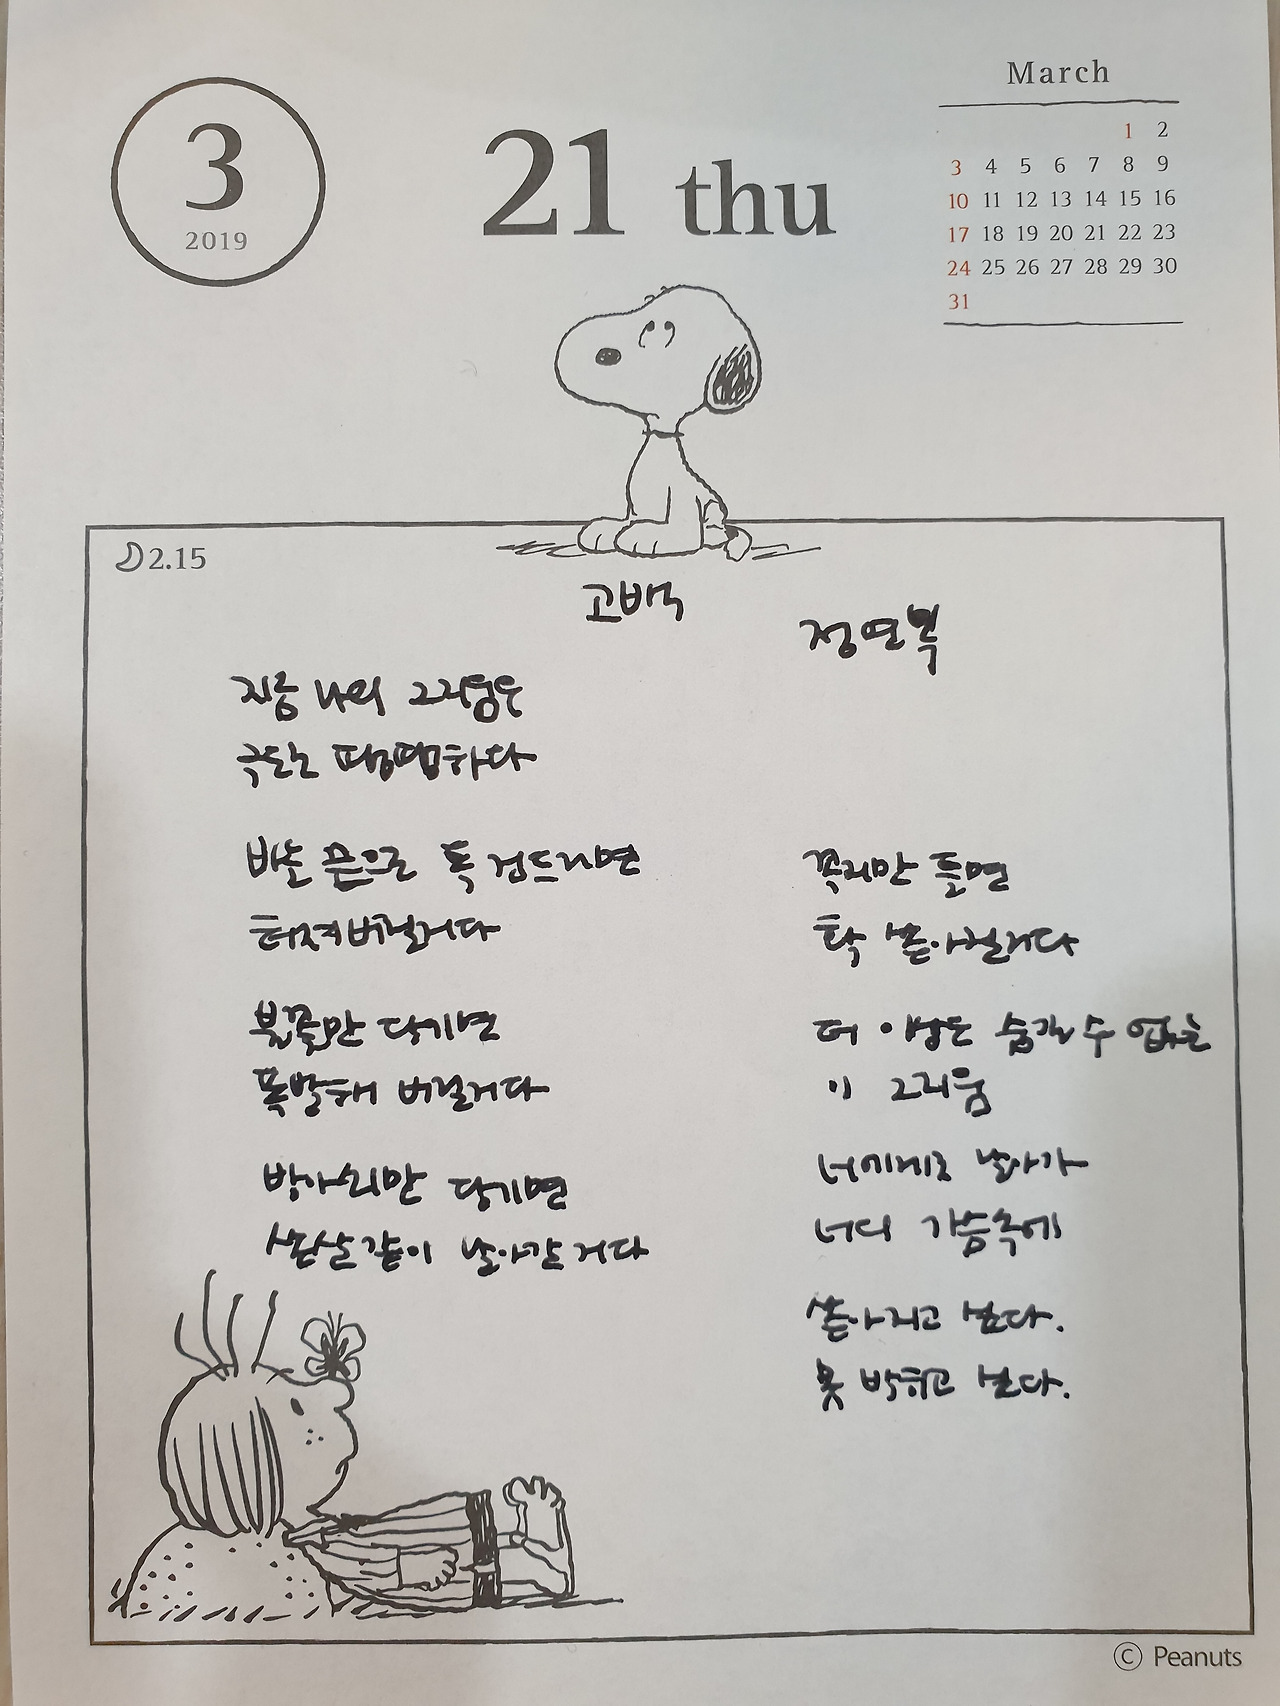 3
2019
21 thu
March
1 2
3 4 5 6 7 8 9
10 11 12 13 14 15 16
17 18 19 20 21 22 23
24 25 26 27 28 29 30
31
2.15
고백
정연복
지금 나의 그리움은
극도로 팽팽하다
바늘 끝으로 톡 건드리면
터져버릴거다
불꽃만 당기면
폭발해 버릴거다
방아쇠만 당기면
쏜살같이 날아갈 거다
꼭지만 틀면
확 쏟아질거다
더 이상은 숨길 수 없는
이 그리움
너에게로 날아가
너의 가슴속에
쏟아지고 싶다.
못 박히고 싶다.
© Peanuts